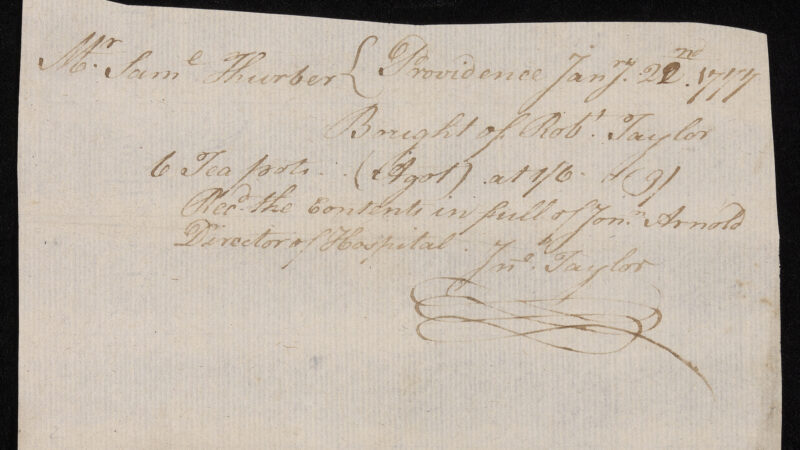 Mr. Same Thurber { Providence Janry. 22nd. 1777
Bought of Robt. Taylor
6 Tea pots .. (1 qrt) at 1/6 .. 9/
Recd. the Contents in full of Jonn. Arnold
Director of Hospital
Jno. Taylor